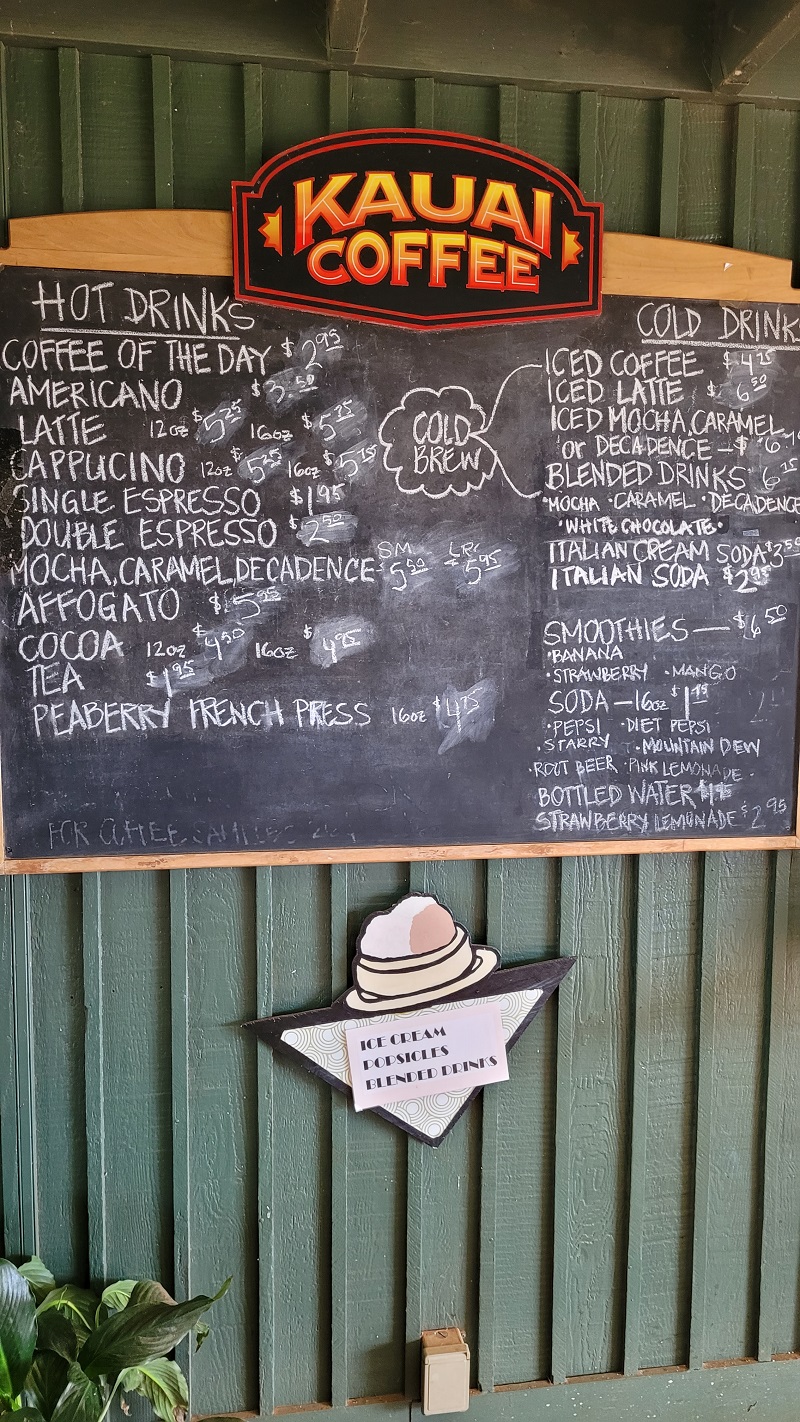 KAUAI
COFFEE
HOT DRINKS
COFFEE OF THE DAY $2.95
AMERICANO $3.50
LATTE 12oz $5.25 16oz $5.75
CAPPUCINO 12oz $5.25 16oz $5.75
SINGLE ESPRESSO $1.95
DOUBLE ESPRESSO $2.50
SM LR
MOCHA, CARAMEL, DECADENCE 5.50 5.95
AFFOGATO $5.95
COCOA 12oz $4.50 16oz $4.95
TEA $1.95
PEABERRY FRENCH PRESS 16oz $4.75
FOR COFFEE
COLD
BREW
COLD DRINKS
ICED COFFEE $4.25
ICED LATTE $6.50
ICED MOCHA, CARAMEL
or DECADENCE — $6
BLENDED DRINKS
•MOCHA •CARAMEL •DECADENCE
•WHITE CHOCOLATE•
ITALIAN CREAM SODA $3.50
ITALIAN SODA $2.95
SMOOTHIES — $6.50
•BANANA
•STRAWBERRY •MANGO
SODA — 16oz
•PEPSI •DIET PEPSI
•STARRY •MOUNTAIN DEW
•ROOT BEER •PINK LEMONADE
BOTTLED WATER
STRAWBERRY LEMONADE $2.95
ICE CREAM
POPSICLES
BLENDED DRINKS